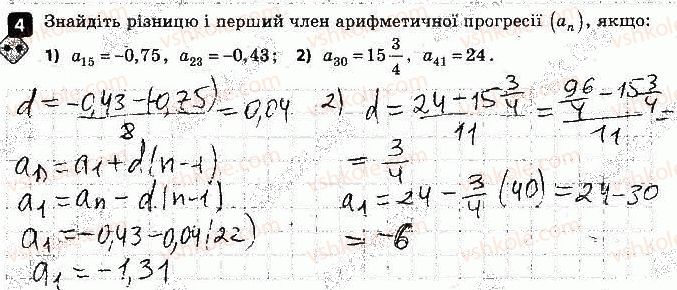 4 Знайдіть різницю і перший член арифметичної прогресії (aₙ), якщо:
1) a₁₅ = –0,75, a₂₃ = –0,43; 2) a₃₀ = 15 3/4, a₄₁ = 24.
d = (-0,43-(-0,75))/8 = 0,04
aₙ = a₁ + d(n-1)
a₁ = aₙ - d(n-1)
a₁ = -0,43-0,04(22)
a₁ = -1,31
2) d = (24-15 3/4)/11 = (96/4 - 15 3/4)/11 =
= 3/4
a₁ = 24 - 3/4 (40) = 24-30
= -6